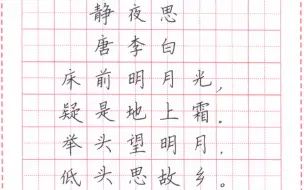 静夜思
唐李白
床前明月光，
疑是地上霜．
举头望明月．
低头思故乡。